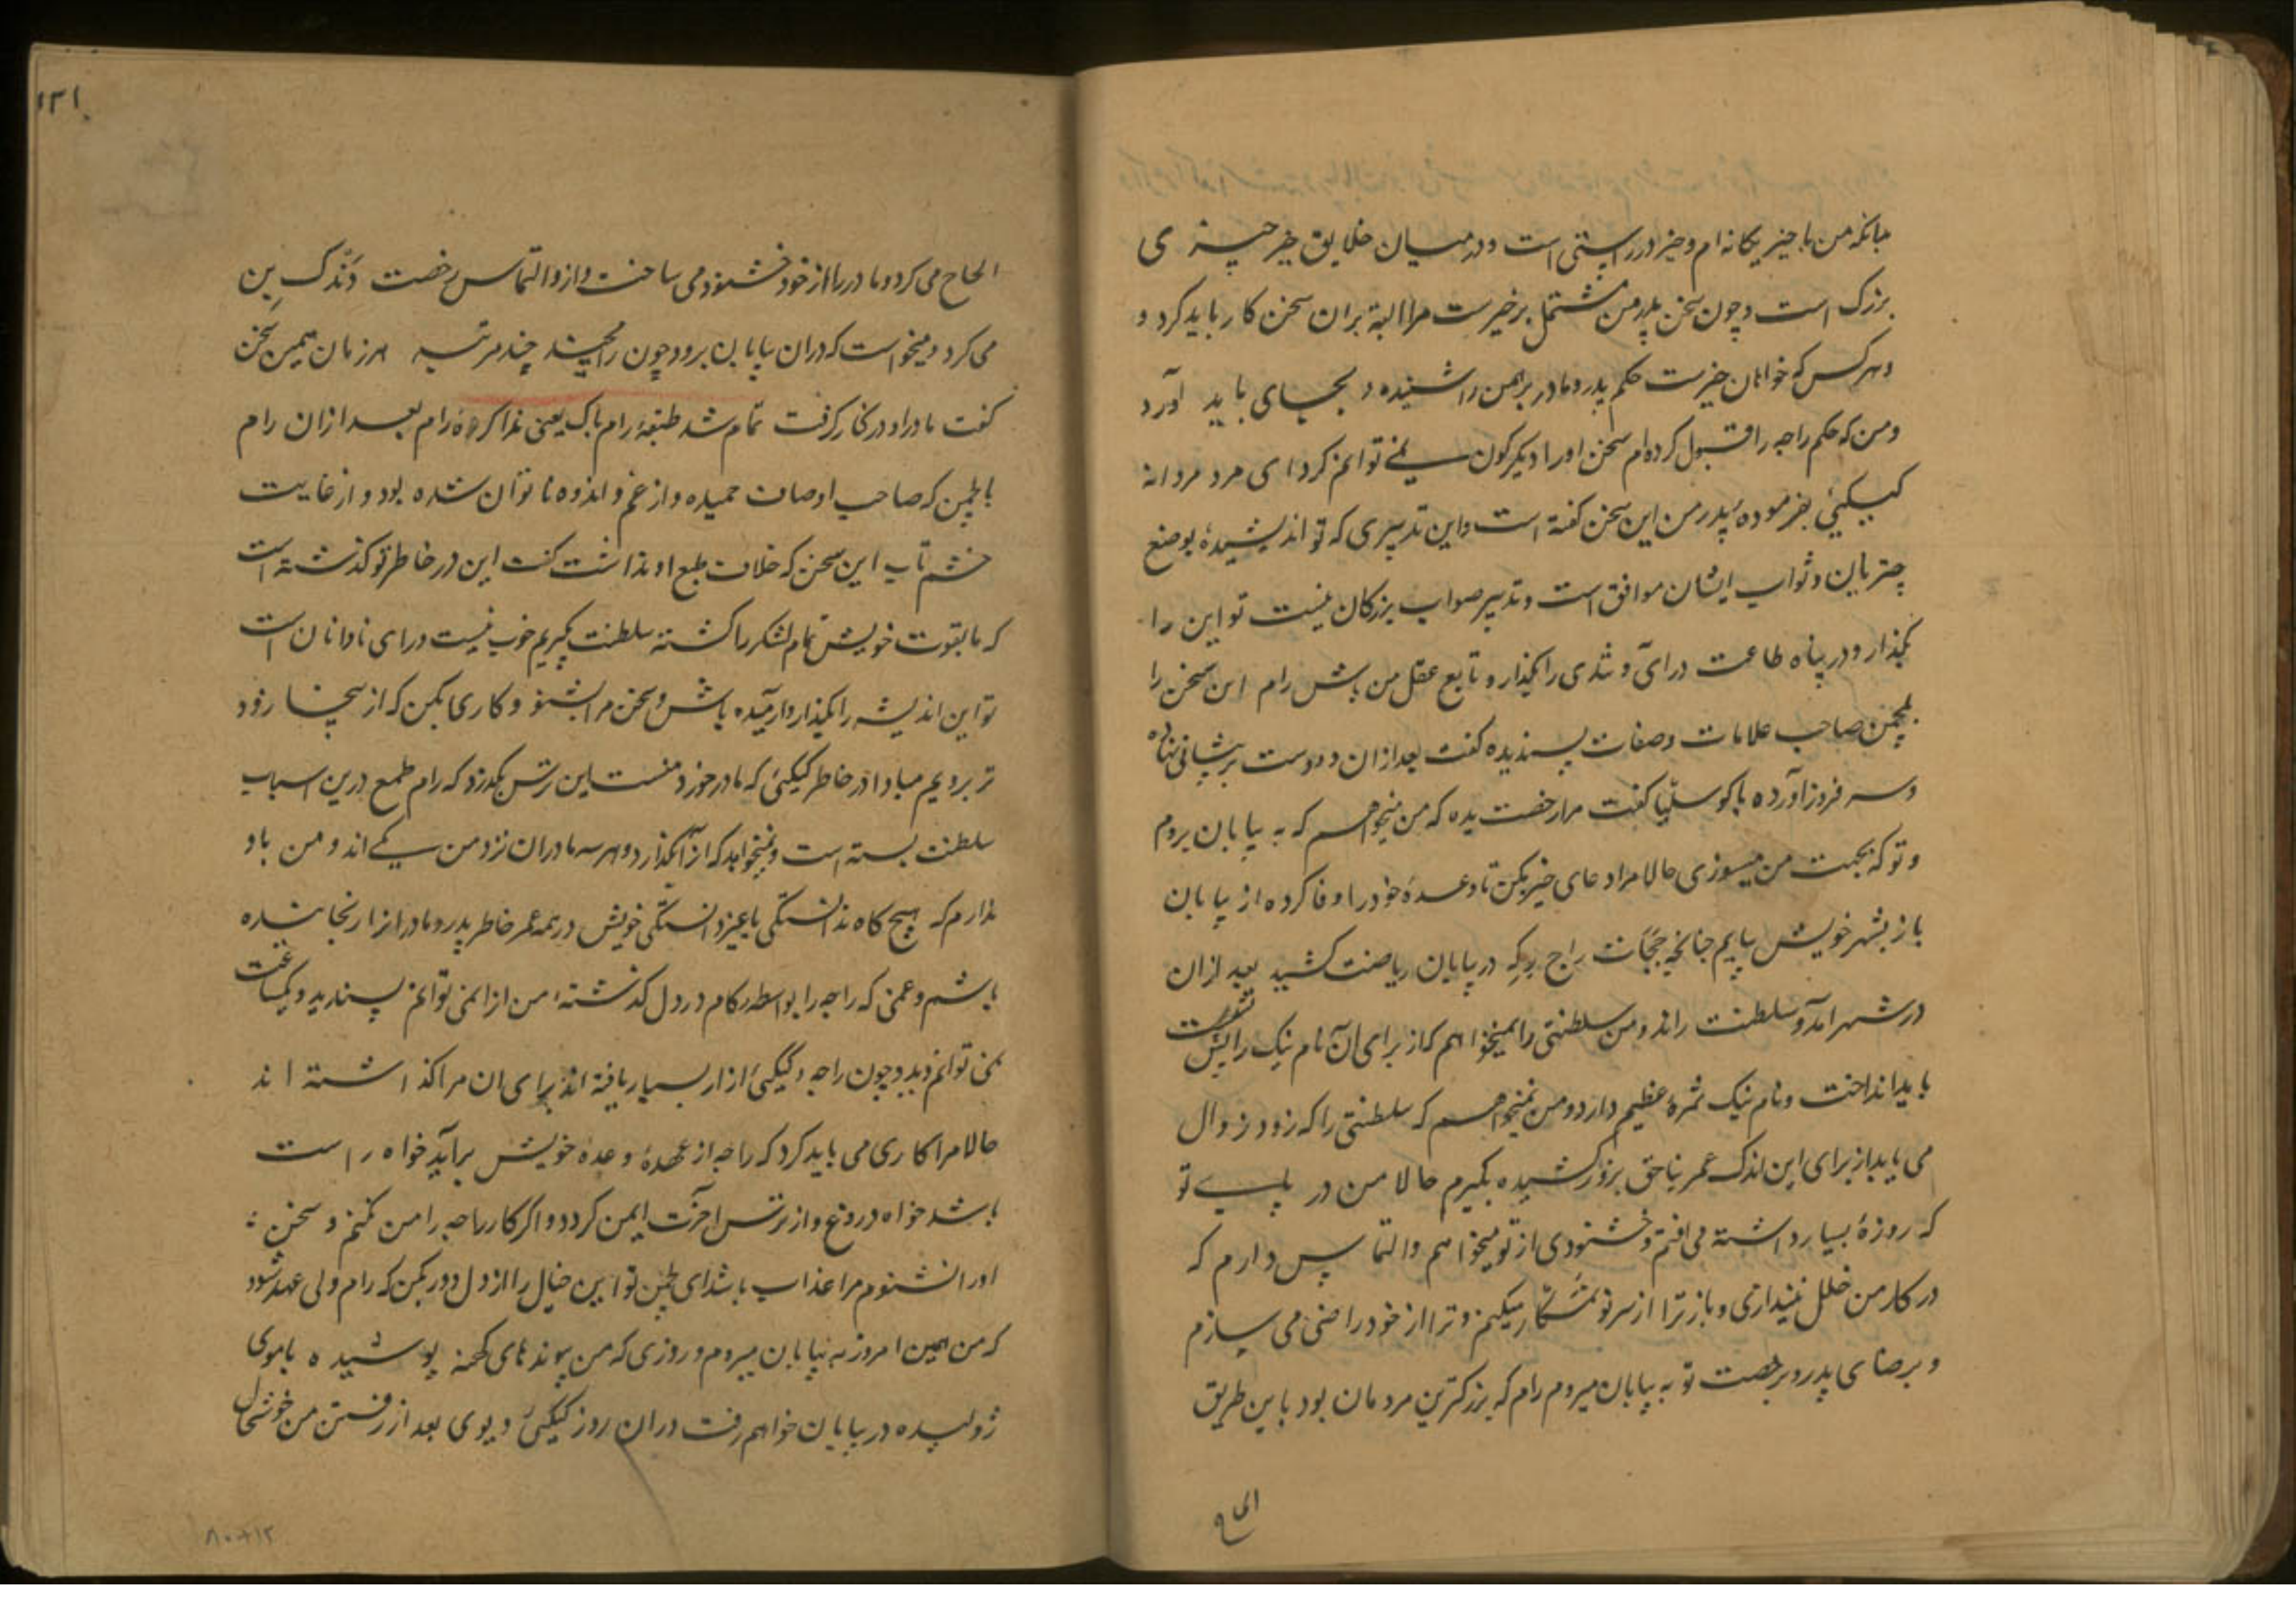 مبانکه من با خیر یکانه ام و خیر در راستی است و در میان خلایق خیر چیزی
بزرک است و چون سخن پدر من مشتمل بر خیرست مرا البته بران سخن کار باید کرد و
و هر کس که خواهان خیرست حکم پدر و مادر برهمن را شنیده بجای باید آورد
و من که حکم راجه را قبول کرده ام سخن او را دیکر کون نمی توانم کرد ای مرد مردانه
کیکئی بفرموده پدر من این سخن کفته است و این تدبیری که تو اندیشیده بوضع
چتریان و ثواب ایشان موافق است و تدبیر صواب بزرکان نیست تو این را
بکذار و در پناه طاعت درآی و تندی را بکذار و تابع عقل من باش رام این سخن را
بلچمن صاحب علامات و صفات پسندیده کفت بعد ازان دو دست بر پیشانی نهاده
و سر فرود آورده با کوسلیا کفت مرا رخصت بده که من میخواهم که به بیابان بروم
و تو که بجهت من میسوزی حالا مرا دعای خیر بکن تا وعده خود را وفا کرده از بیابان
باز بشهر خویش بیایم چنانچه ججات راج رکه در بیابان ریاضت کشید بعد ازان
در شهر آمد و سلطنت راند و من سلطنتی را نمیخواهم که از برای آن نام نیک را پس پشت
باید انداخت و نام نیک ثمره عظیم دارد و من نمیخواهم که سلطنتی را که زود زوال
می یابد از برای این اندک عمر بناحق بزور کشیده بکیرم حالا من در پای تو
که روزه بسیار داشته می افتم و خشنودی از تو میخواهم و التماس دارم که
در کار من خلل نیندازی و باز ترا از سر نو نمشکار میکنم و ترا از خود راضی می سازم
و برضای پدر و برخصت تو به بیابان میروم رام که بزرکترین مردمان بود باین طریق
الحاح
۱۳۱
الحاح می کرد و مادر را از خود خشنود می ساخت و ازو التماس رخصت دندک بن
می کرد و میخواست که دران بیابان برود چون رامچند چند مرتبه هر زمان همین سخن
کفت مادر او در کنار کرفت تمام شد طبقه رام باک یعنی مذاکره رام بعد ازان رام
با لچمن که صاحب اوصاف حمیده و از غم و اندوه ناتوان شده بود و از غایت
خشم تاب این سخن که خلاف طبع او نداشت کفت این در خاطر تو کذشته است
که ما بقوت خویش تمام لشکر را کشته سلطنت بکیریم خوب نیست و رای نادانان است
تو این اندیشه را بکذار و آرمیده باش و سخن مرا بشنو و کاری بکن که از ینجا زود
تر برویم مبادا در خاطر کیکئی که مادر خورد منست این ترس بکذرد که رام طمع درین اسباب
سلطنت بسته است و نمیخواهد که از آن بکذارد و هر سه مادران نزد من یکی اند و من یاد
ندارم که هیچ کاه ندانستکی یا غیر دانستکی خویش در همه عمر خاطر پدر و مادر ازار رنجانیده
باشم و غمی که راجه را بواسطه کام در دل کذشته من ازا نمی توانم پسندید و یکساعت
نمی توانم دید و چون راجه و کیکئی ازار بسیار یافته اند برای ان مرا کذاشته اند
حالا مرا کاری می باید کرد که راجه از عهده وعده خویش برآید خواه راست
باشد خواه دروغ و از ترس آخرت ایمن کردد و اکر کار راجه را من نکنم و سخن
او را نشنوم مرا عذاب باشد ای لچمن تو این خیال را از دل دور بکن که رام ولی عهد شود
که من همین امروز به بیابان میروم و روزی که من پیوندهای کهنه پوشیده با موی
ژولیده در بیابان خواهم رفت دران روز کیکئی دیوی بعد از رفتن من خوشحال
۸۰۰۱۲